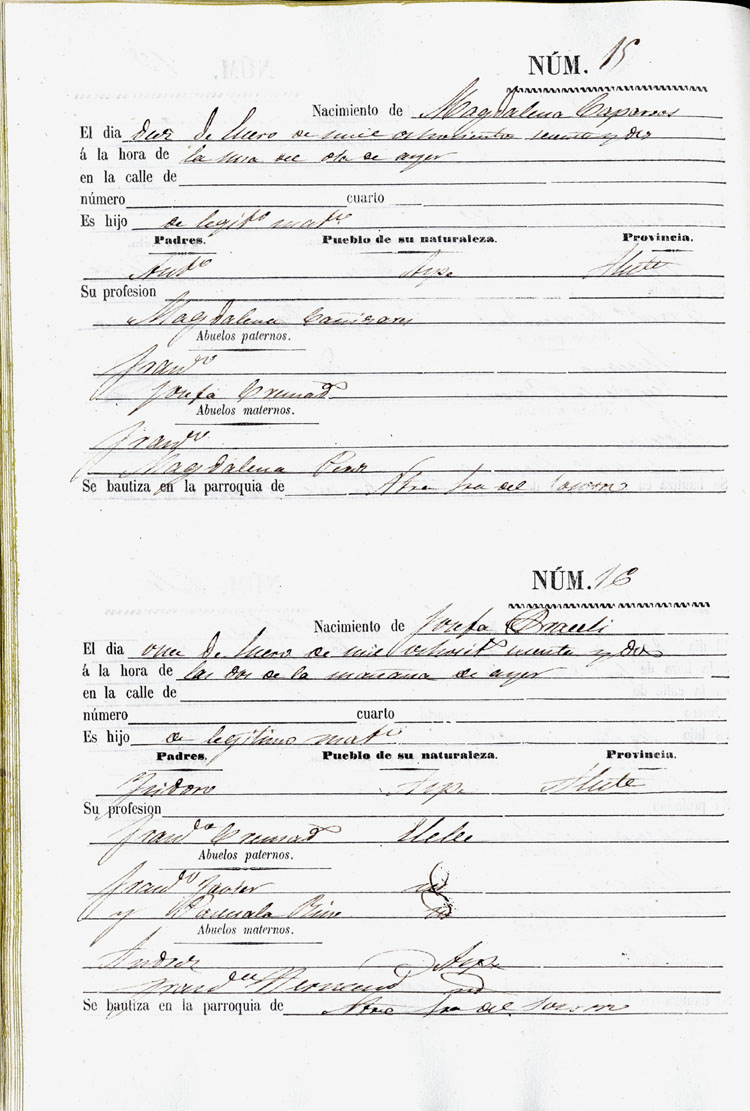 NÚM. 15
Nacimiento de Magdalena Caparros
El dia diez de Enero de mil ochocientos setenta y dos
á la hora de la una del dia de ayer
en la calle de
número cuarto
Es hijo de legitº matº
Padres. Pueblo de su naturaleza. Provincia.
Antº Aspe Alicte
Su profesion
Magdalena Cañizares
Abuelos paternos.
Franº
Josefa Cremad
Abuelos maternos.
Franº
Magdalena
Se bautiza en la parroquia de Ntra Sra del Socorro
NÚM. 16
Nacimiento de Josefa
El dia once de Enero de mil ochocit setenta y dos
á la hora de las dos de la mañana de ayer
en la calle de
número cuarto
Es hijo de legitimo matº
Padres. Pueblo de su naturaleza. Provincia.
Isidoro Aspe Alicte
Su profesion
Franca Cremad Elche
Abuelos paternos.
Franº Javier id
y Pascuala id
Abuelos maternos.
Andres Aspe
Franca id
Se bautiza en la parroquia de Ntra Sra del Socorro